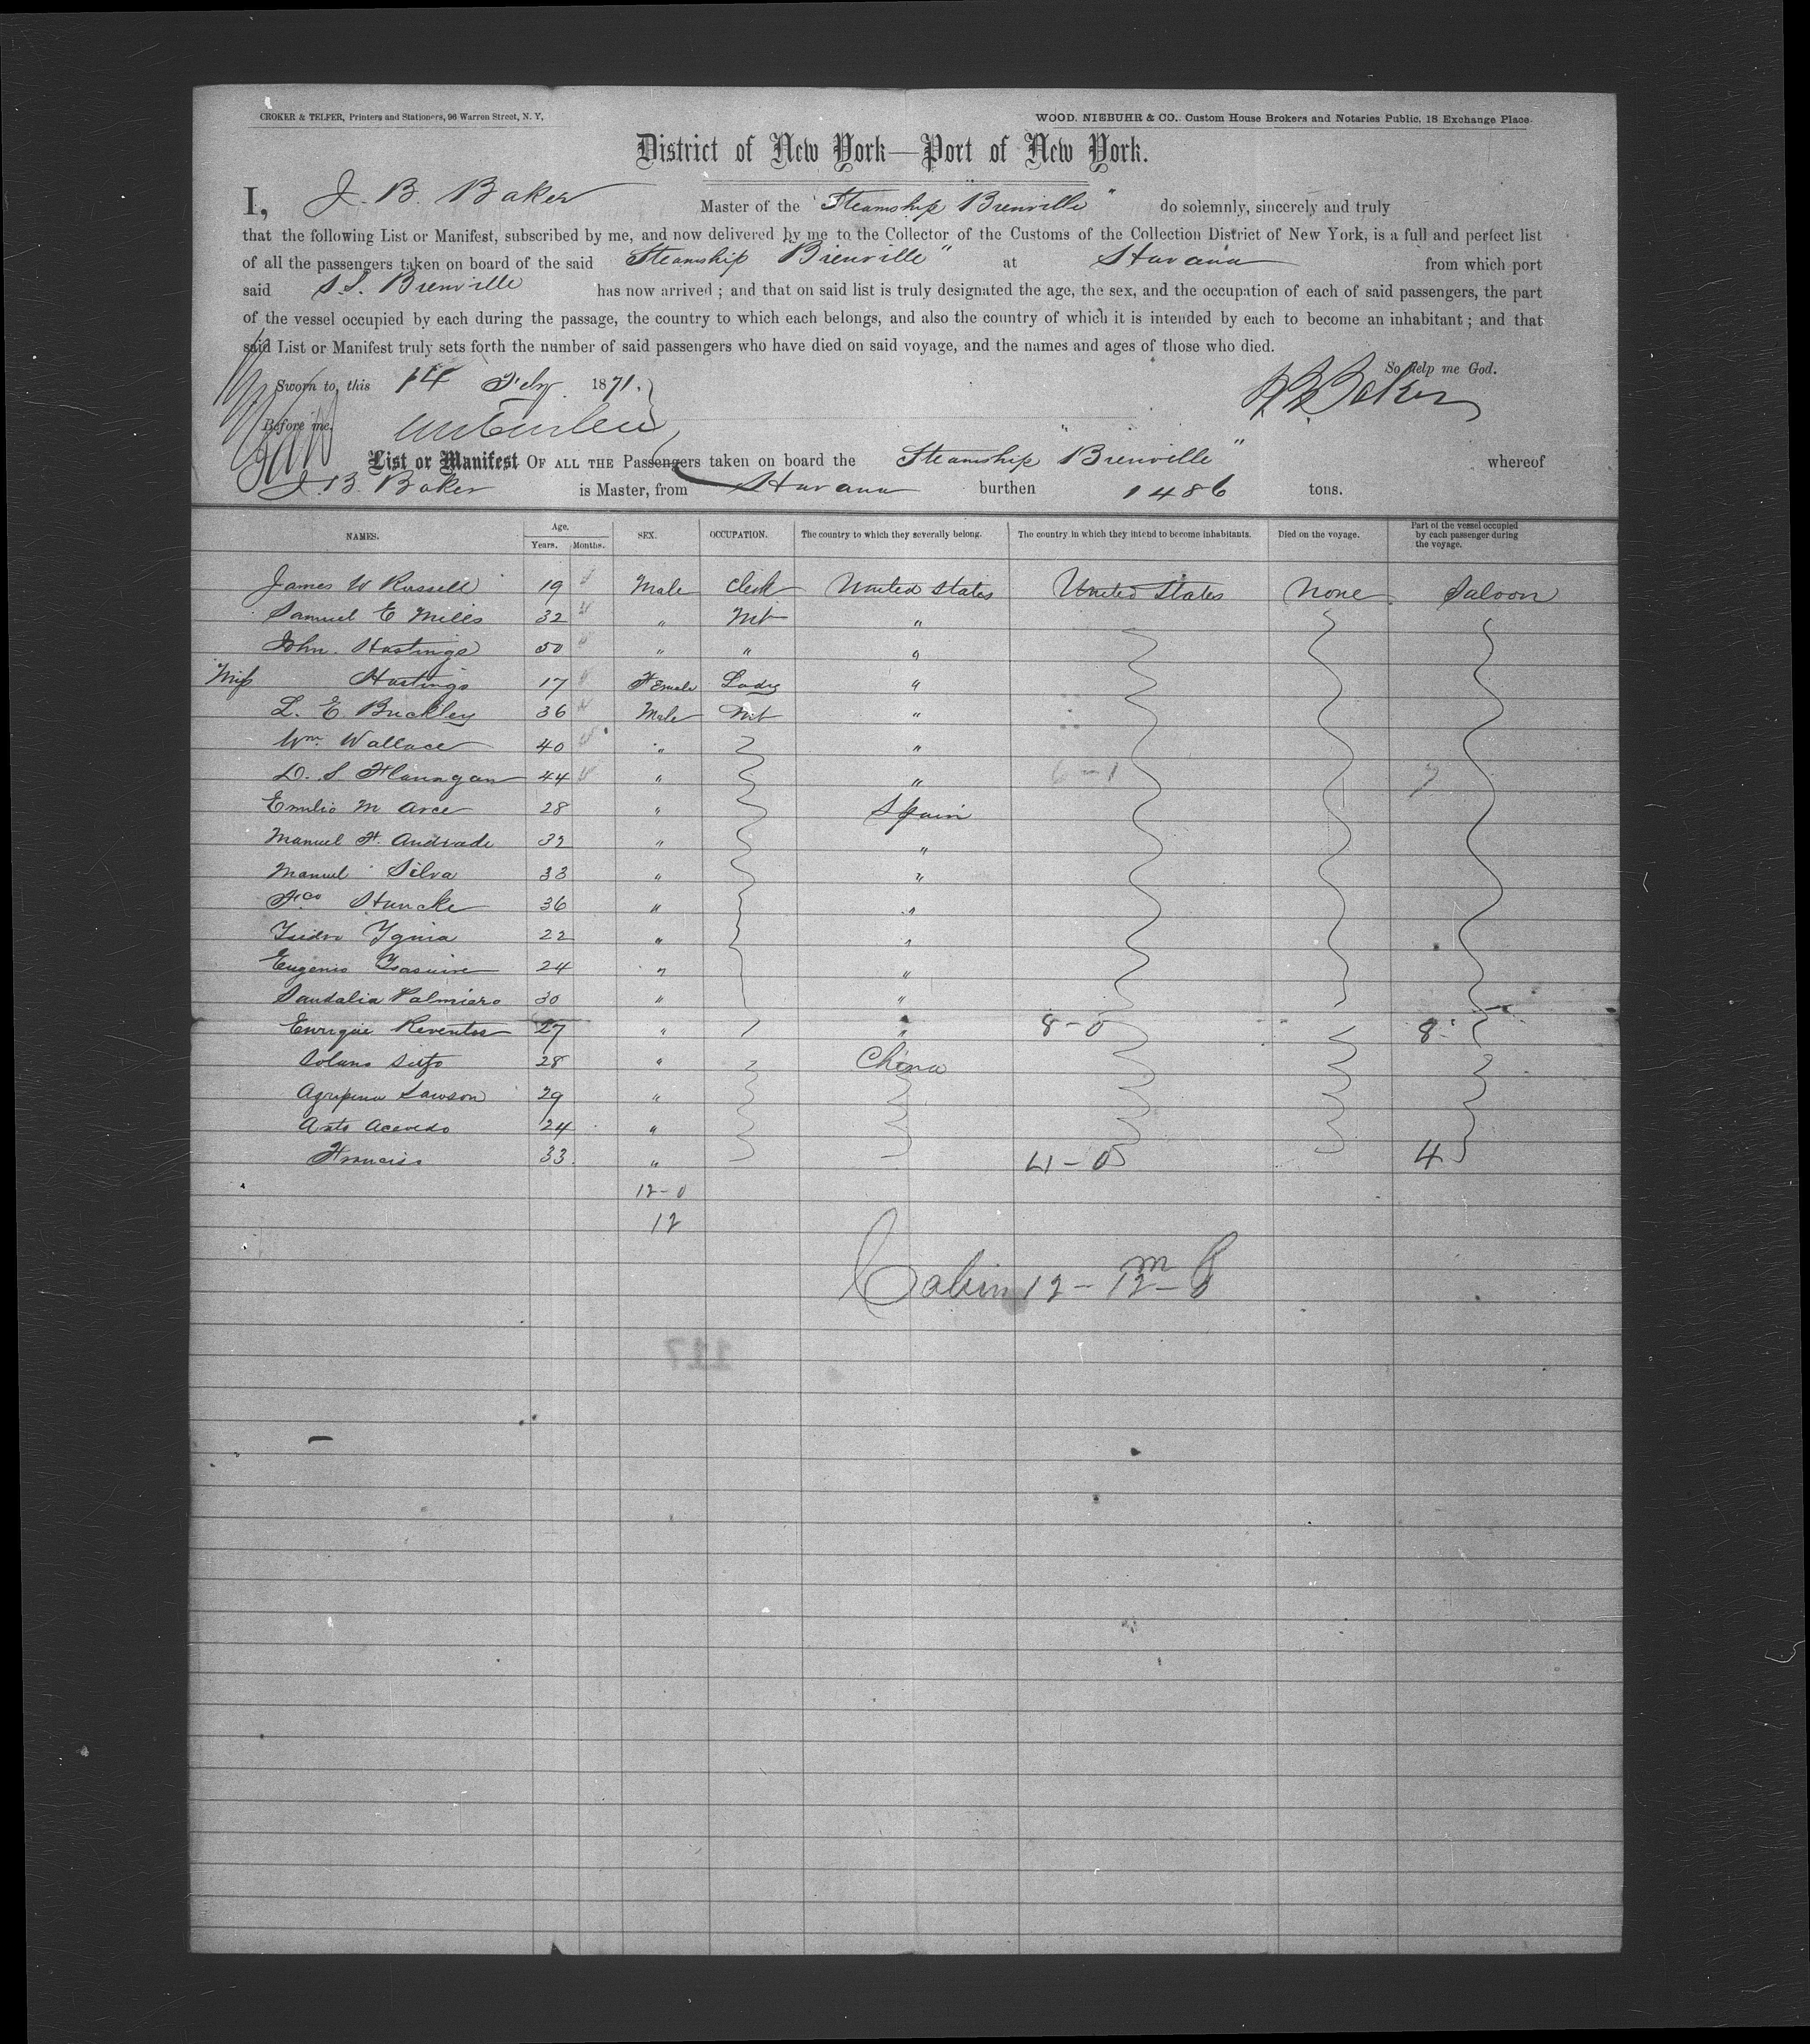 CROKER & TELFER, Printers and Stationers, 96 Warren Street, N. Y,
WOOD. NIEBUHR & CO. Custom House Brokers and Notaries Public, 18 Exchange Place.
District of New York—Port of New York.
I, J. B. Baker Master of the "Steamship Bienville" do solemnly, sincerely and truly
that the following List or Manifest, subscribed by me, and now delivered by me to the Collector of the Customs of the Collection District of New York, is a full and perfect list
of all the passengers taken on board of the said Steamship "Bienville" at Havana from which port
said S.S. Bienville has now arrived ; and that on said list is truly designated the age, the sex, and the occupation of each of said passengers, the part
of the vessel occupied by each during the passage, the country to which each belongs, and also the country of which it is intended by each to become an inhabitant ; and that
said List or Manifest truly sets forth the number of said passengers who have died on said voyage, and the names and ages of those who died.
So help me God.
Sworn to, this 14 Feby. 1871. J B Baker
Before me,
List or Manifest OF ALL THE Passengers taken on board the Steamship "Bienville" whereof
J. B. Baker is Master, from Havana burthen 1486 tons.
NAMES. Age. Years. Months. SEX. OCCUPATION. The country to which they severally belong. The country in which they intend to become inhabitants. Died on the voyage. Part of the vessel occupied by each passenger during the voyage.
James W Russell 19 Male Clerk United States United States None Saloon
Samuel E Mills 32 " Mt "
John Hastings 50 " " "
Miss Hastings 17 Female Lady "
L. E. Buckley 36 Male Mt "
Wm. Wallace 40 " "
D. S Flannagan 44 " " 6-1 7
Emilio M Arce 28 " Spain
Manuel F. Andrade 32 " "
Manuel Silva 33 " "
Fco Huncke 36 " "
Isidro Ygnia 22 " "
Eugenio 24 " "
Sandalia Palmiero 30 " "
Enrique Reventos 27 " " 8-0 8
Solano 28 " China
Agripino Lawson 29 "
Anto Acevedo 24 "
Francis 33 " 4-0 4
12-0
12
Cabin 12 - 12 - 0
m
117